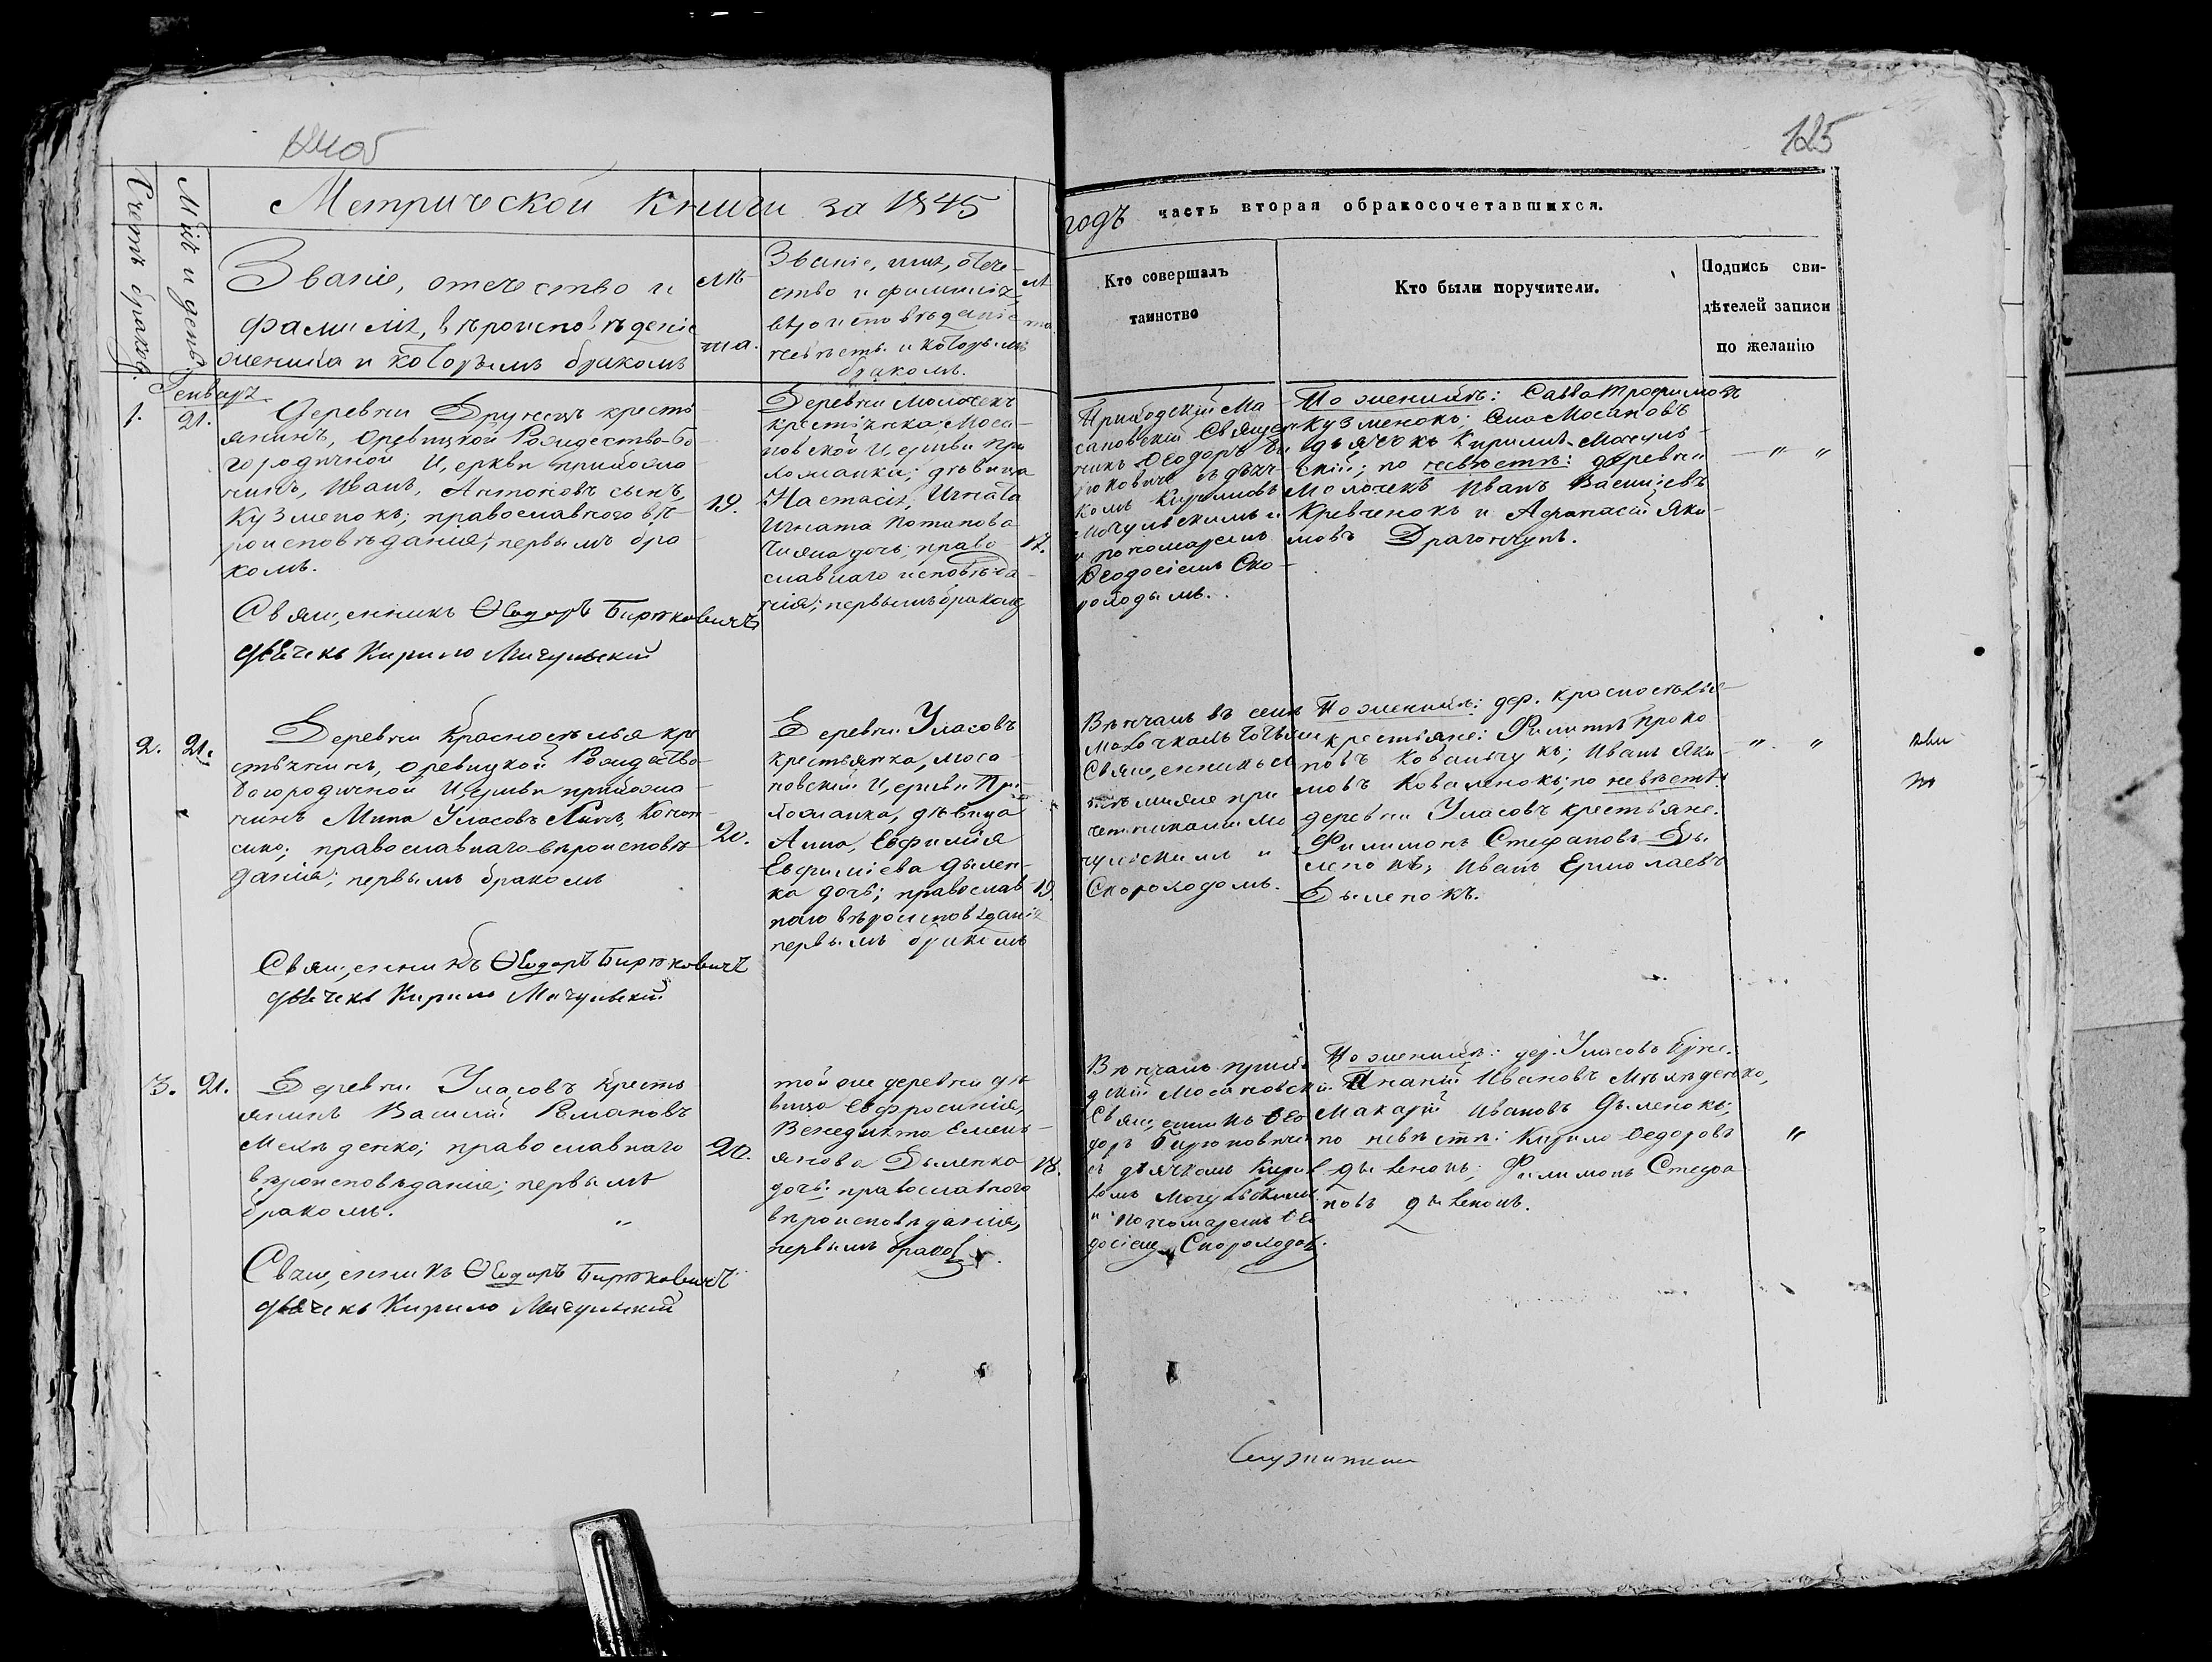 125
Метрической книги за 1845
годъ часть вторая обракосочетавшихся.
Счетъ браковъ.
Мѣс. и день.
Званіе, отечество и
фамилія, вѣроисповѣденіе
жениха и которымъ бракомъ
лѣ-
та.
Званіе, имя, отече-
ство и фамилія,
вѣроисповѣданіе
невѣсты и которымъ
бракомъ.
лѣ
та
Кто совершалъ
таинство
Кто были поручители.
Подпись сви-
дѣтелей записи
по желанію
Генварь
1.
21.
Деревни Дружец кресть
янинъ, Оревицкой Рождество-Бо-
городичной Церкви прихожа
нинъ, Иванъ, Антоновъ сынъ,
Кузменокъ; православного вѣ-
роисповѣдания; первымъ бра-
комъ.
Священникъ Ѳеодоръ Бирюковичъ
дьячекъ Кирило Мигульский
19.
Деревни Молочекъ
крестьянка, Моса-
новской Церкви при
хожанка; дѣвица
Настасія, Игната
Игната Потапова
дочь; право-
славнаго исповѣда-
нія; первымъ бракомъ
17.
Приходскій Ма-
сановскій Священ
никъ Ѳеодоръ Би
рюковичъ съ дьяч-
комъ Кирилловъ
Мигульскимъ и
и пономаремъ
Ѳеодосіемъ Ско-
роходымъ.
По женихѣ: Савва Трофимовъ
Кузменокъ; села Мосановъ
дьячокъ Кириллъ Мигуль-
скій; по невѣстѣ: деревни
Молочекъ Иванъ Василіевъ
Кревченокъ и Афанасій Яки-
мовъ Драгончукъ.
2.
21.
Деревни Красноселья кре
стьянинъ, Оревицкой Рождество-
Богородичной Церкви прихожа-
нинъ Мина Уласовъ сынъ,
православнаго вѣроисповѣ-
дания; первымъ бракомъ
Священникъ Ѳеодоръ Бирюковичъ
дьячекъ Кирило Мигульский
20.
Деревни Уласовъ
крестьянка, Моса-
новской Церкви При
хожанка, дѣвица
Анна, Евфимія
Евфиміева Дылен-
ка дочь; православ-
наго вѣроисповѣданія
первымъ бракомъ
19.
Вѣнчалъ въ селѣ
Священникъ
при
четниками Ми
гульскимъ и
Скороходомъ.
По женихѣ: дер. Красноселье
крестьяне: Филиппъ Проко
повъ Ковальчукъ; Иванъ Яки-
мовъ Коваленокъ; по невѣстѣ:
деревни Уласовъ крестьяне.
Филимонъ Стефановъ Ды-
ленокъ, Иванъ Ермолаевъ
Дыленокъ.
3.
21.
Деревни Уласовъ кресть
янинъ Василій Романовъ
православнаго
вѣроисповѣдания; первымъ
бракомъ.
Священникъ Ѳеодоръ Бирюковичъ
дьячекъ Кирило Мигульский
20.
той же деревни дѣ-
вица Ефросинія,
Венедикта Емель-
янова Дыленка
дочь; православного
вѣроисповѣдания,
первымъ браком
18.
Вѣнчалъ прихо
дскій Мосановскій
Священникъ Ѳео
доръ Бирюковичъ
съ дьячкомъ Кирил
ломъ Мигульскимъ
и пономаремъ Ѳео
досіемъ Скороходом.
По женихѣ: дер. Уласовъ Кре.
Ананій Ивановъ
Макарій Ивановъ Дыленокъ;
по невѣстѣ: Кирило Ѳедоровъ
Дыленокъ; Филимонъ Стефа
новъ Дыленокъ.